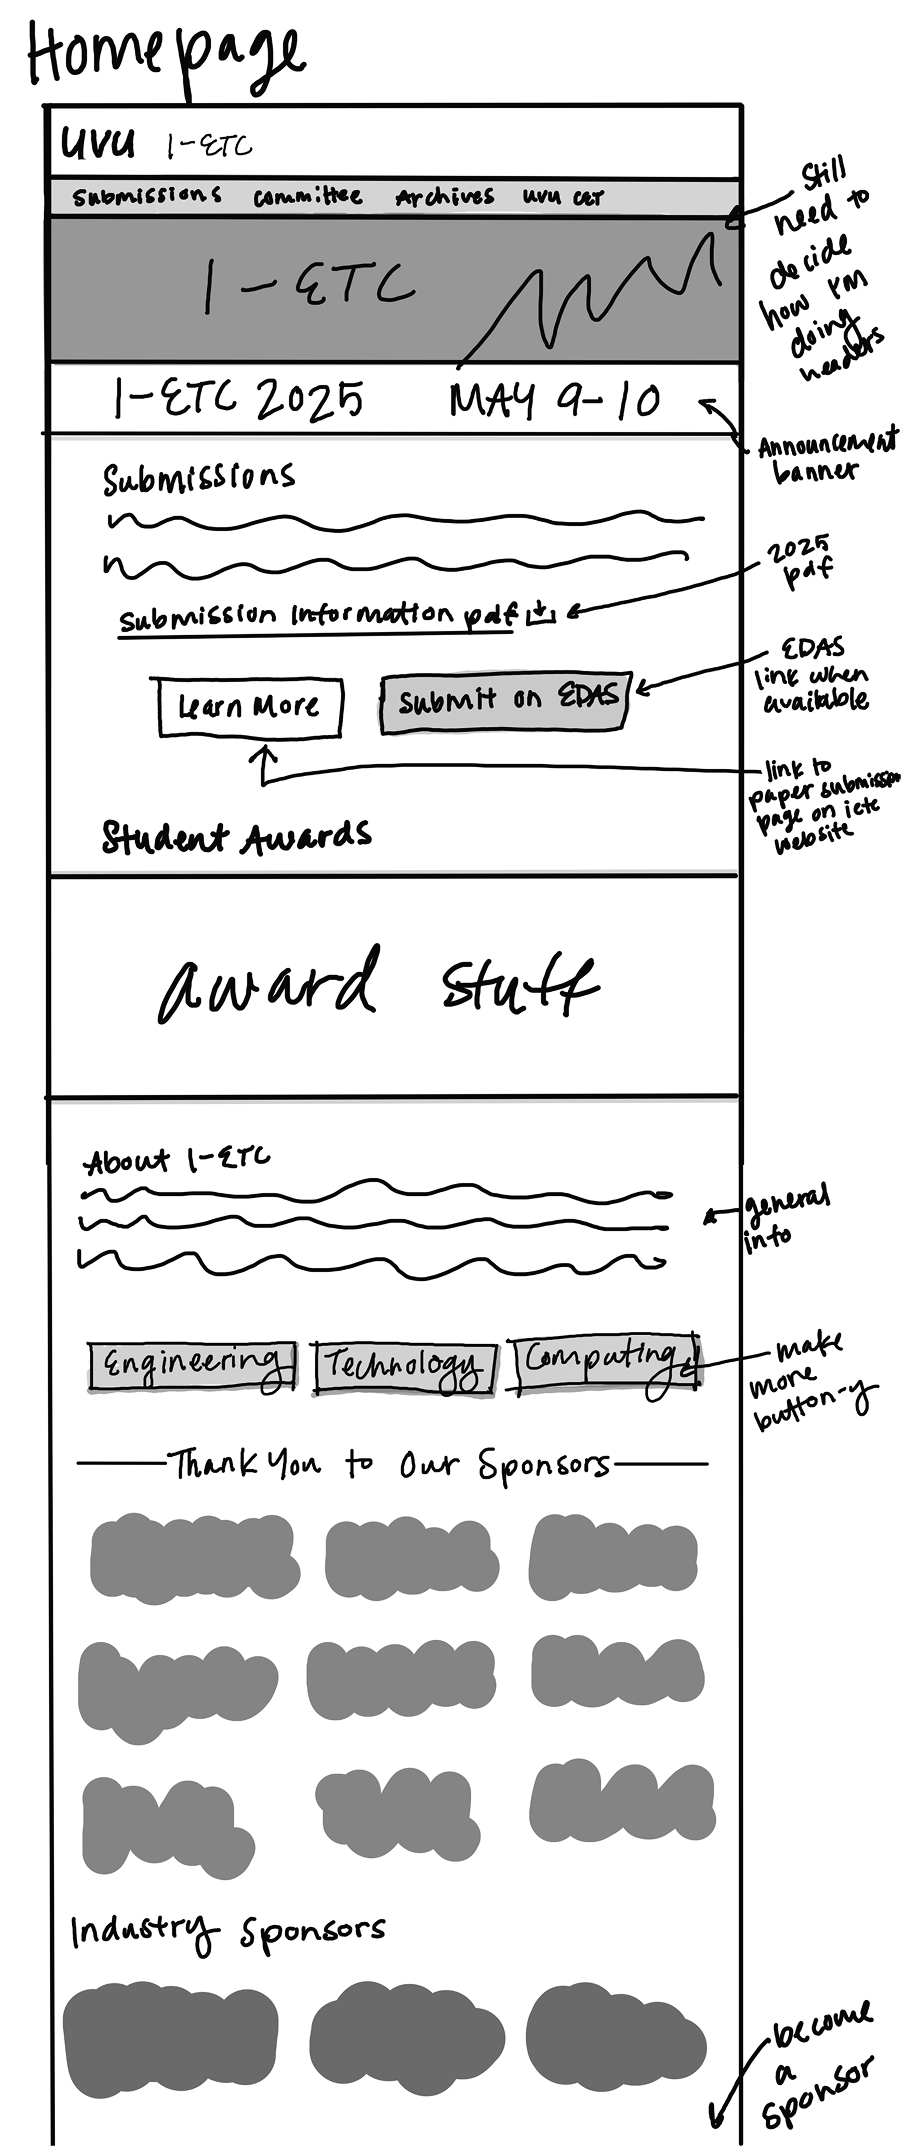 Homepage
UVU I-ETC
Submissions Committee Archives UVU CET
Still
need to
decide
how I'm
doing
headers
I-ETC
I-ETC 2025 MAY 9-10
Announcement
banner
Submissions
2025
pdf
Submission Information pdf
EDAS
link when
available
Learn More Submit on EDAS
link to
paper submission
page on ietc
website
Student Awards
award stuff
About I-ETC
general
info
Engineering Technology Computing
make
more
button-y
Thank You to Our Sponsors
Industry Sponsors
become
a
sponsor